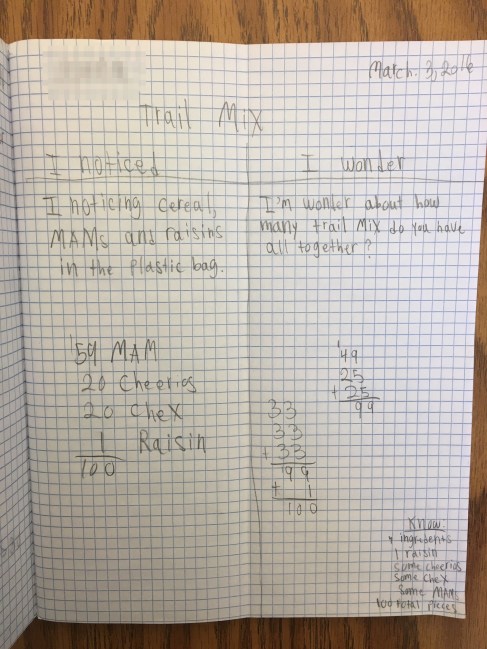 March. 3, 2016
Trail Mix
I noticed
I noticing cereal,
MAMs and raisins
in the plastic bag.
I wonder
I'm wonder about how
many trail mix do you have
all together?
59 MAM
20 Cheerios
20 Chex
1 Raisin
100
33
33
+ 33
99
+ 1
100
1
49
25
+ 25
99
Know
4 ingredents
1 raisin
some cheerios
some chex
some MAMs
100 total pieces